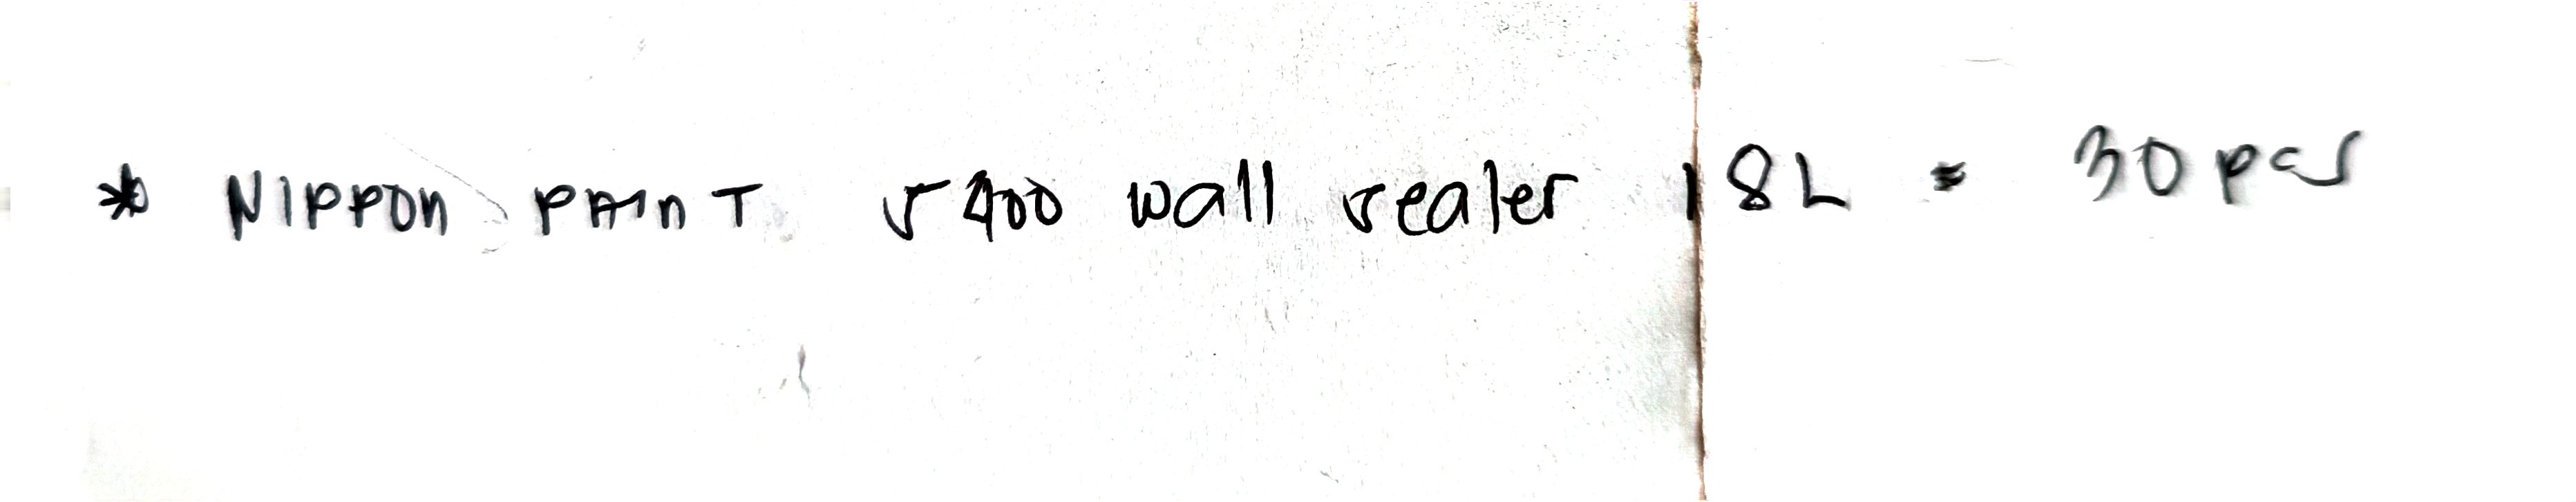 * NIPPON PAINT 5400 wall sealer 18L = 30 pcs